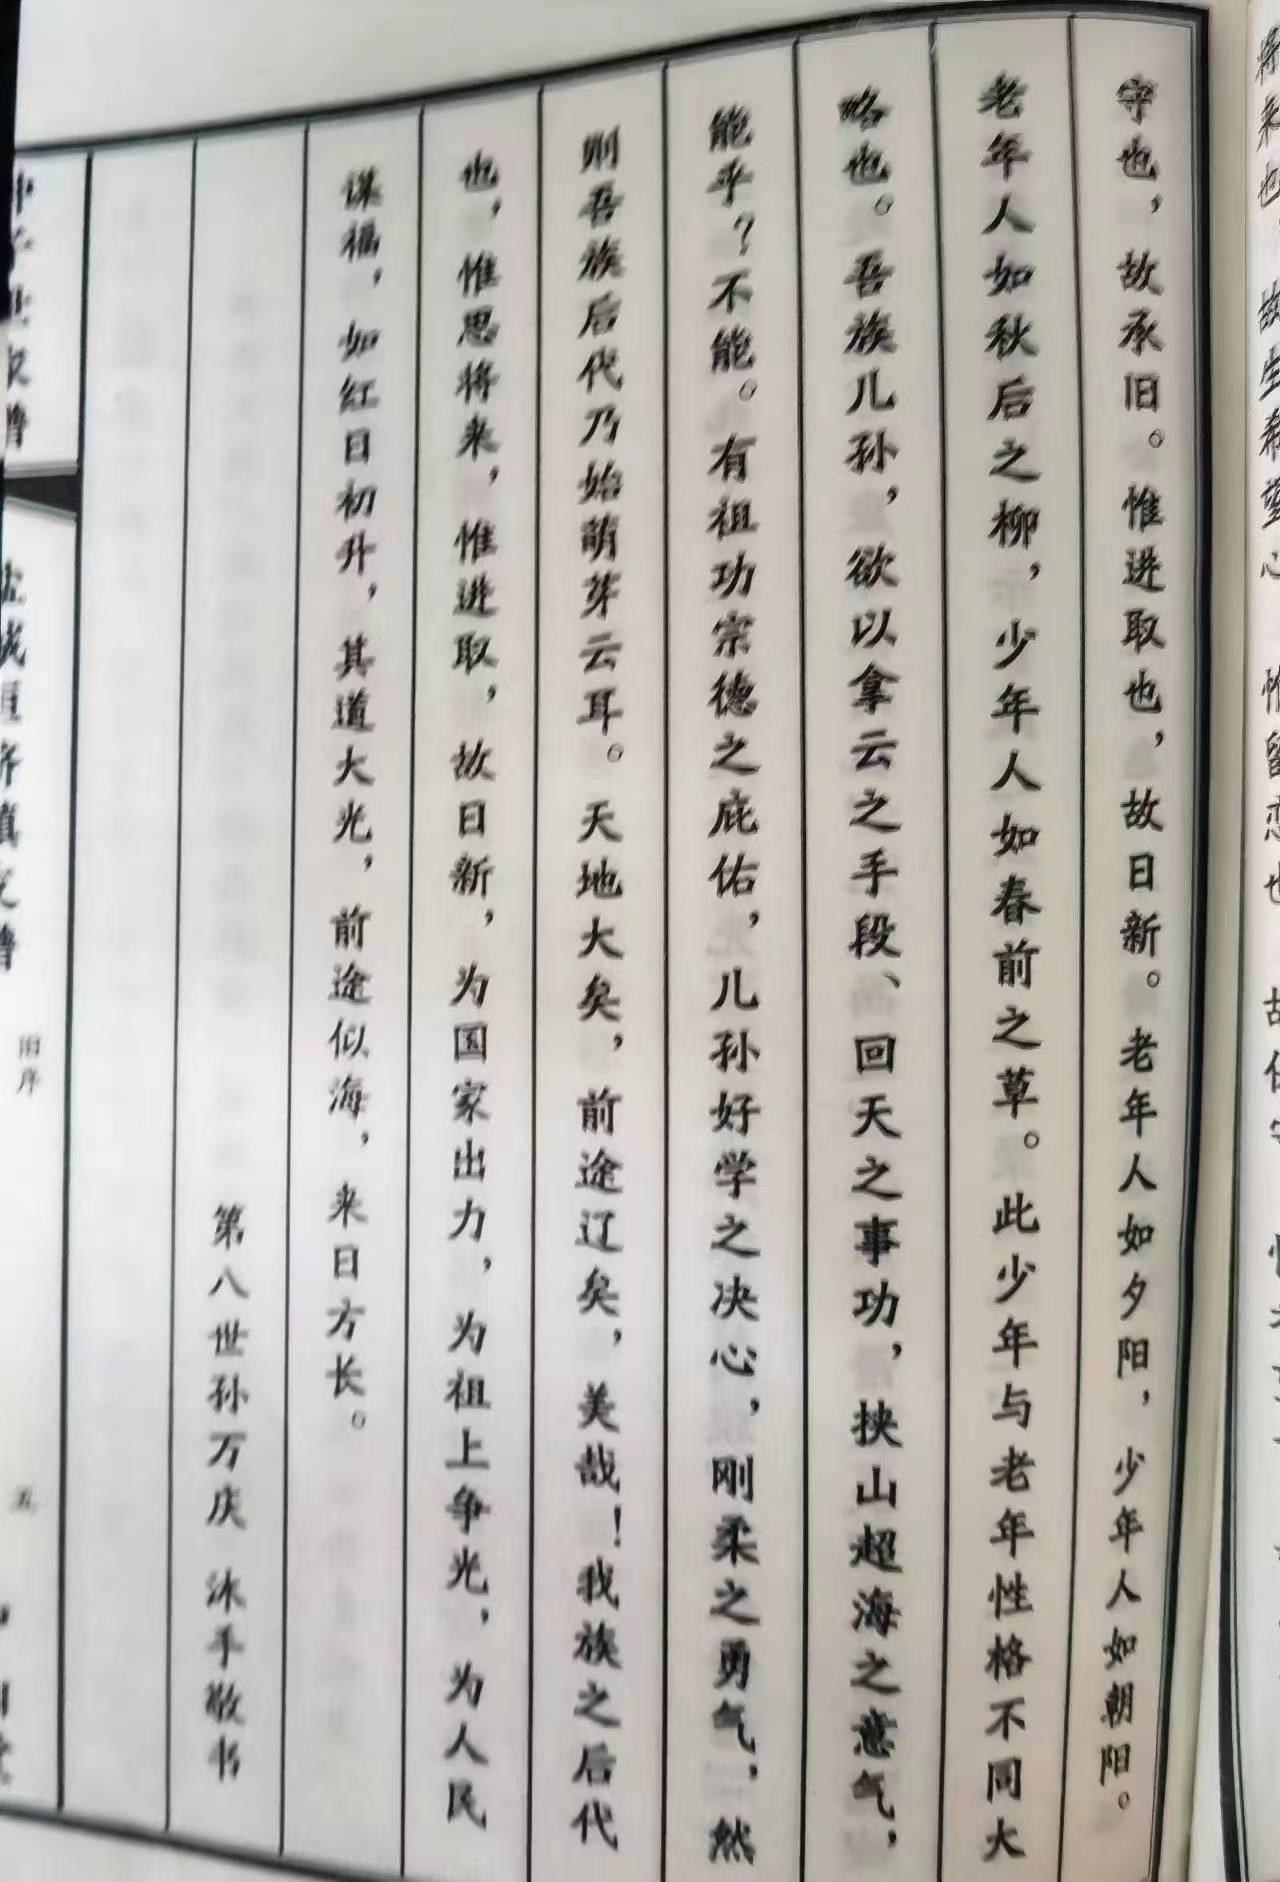 守也，故承旧。惟进取也，故日新。老年人如夕阳，少年人如朝阳。
老年人如秋后之柳，少年人如春前之草。此少年与老年性格不同大
略也。吾族儿孙，欲以拿云之手段、回天之事功，挟山超海之意气，
能乎？不能。有祖功宗德之庇佑，儿孙好学之决心，刚柔之勇气，然
则吾族后代乃始萌芽云耳。天地大矣，前途辽矣，美哉！我族之后代
也，惟思将来，惟进取，故日新，为国家出力，为祖上争光，为人民
谋福，如红日初升，其道大光，前途似海，来日方长。
第八世孙万庆 沐手敬书
旧序
五